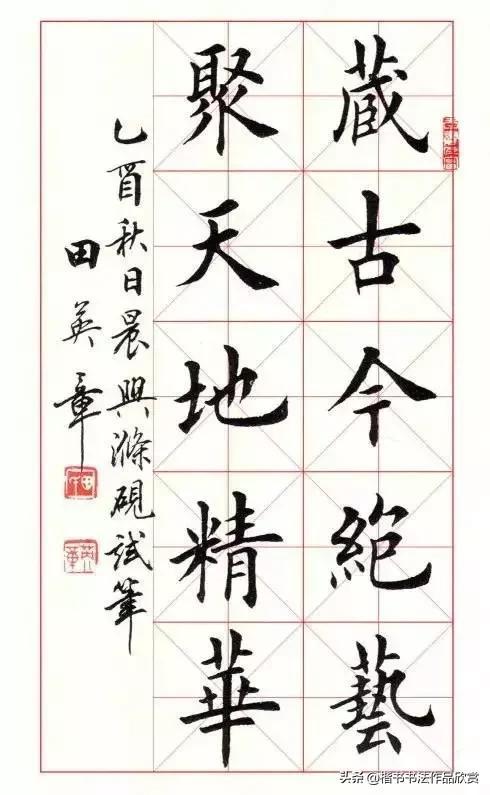 藏古今絕藝
聚天地精華
乙酉秋日晨興滌硯試筆
田英章
头条 @楷书书法作品欣赏